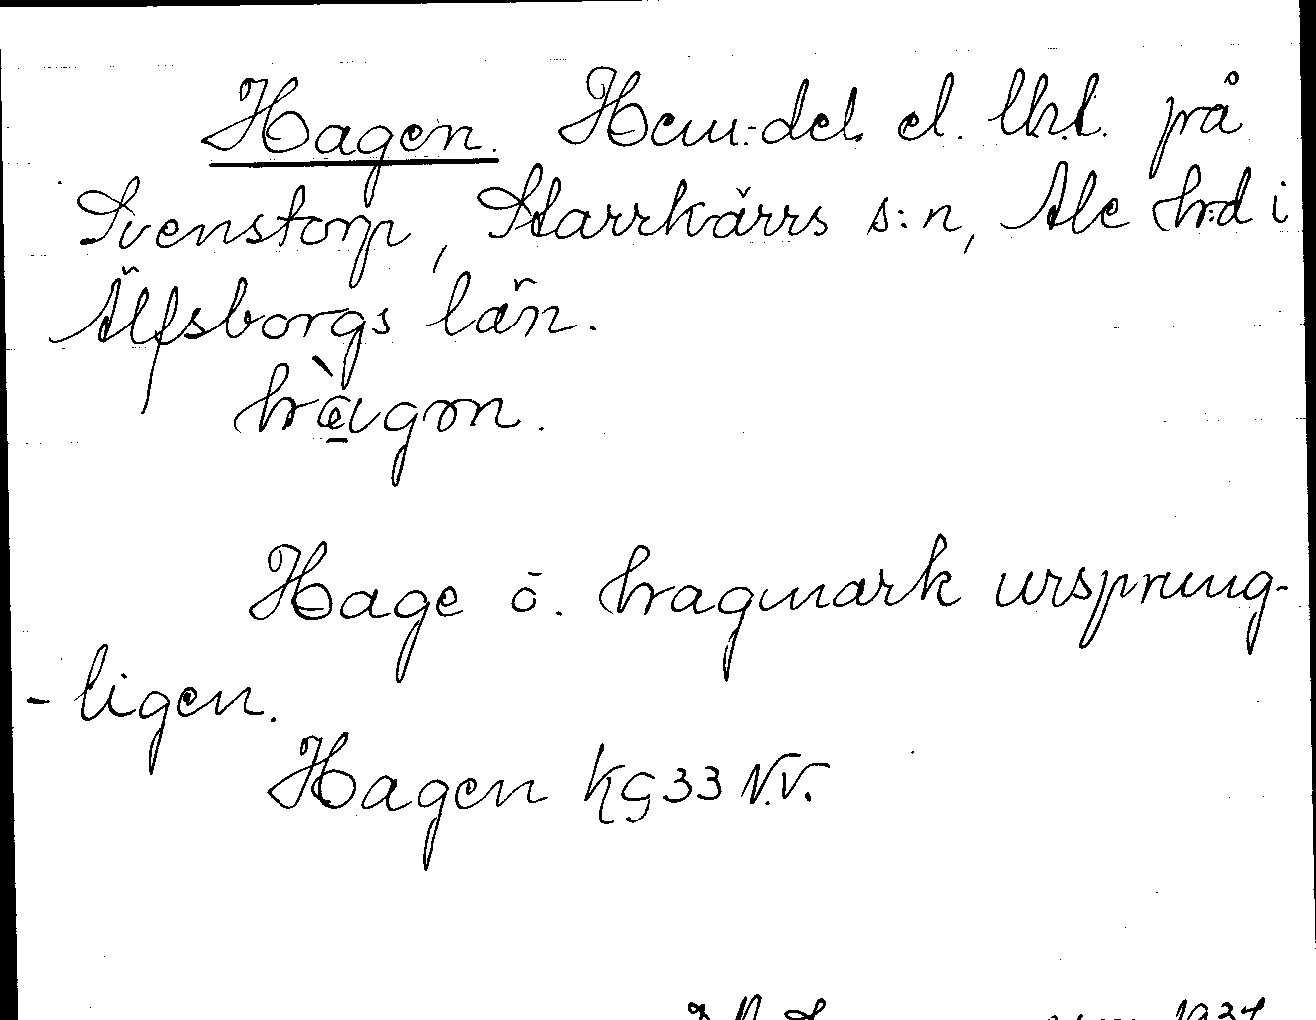 Hagen. Hem:del. el. lht. på
Svenstorp, Starrkärrs s:n, Ale h:d i
Älfsborgs län.
hàgon.
Hage ō. hagmark ursprung-
- ligen.
Hagen KG33 N.V.
1937